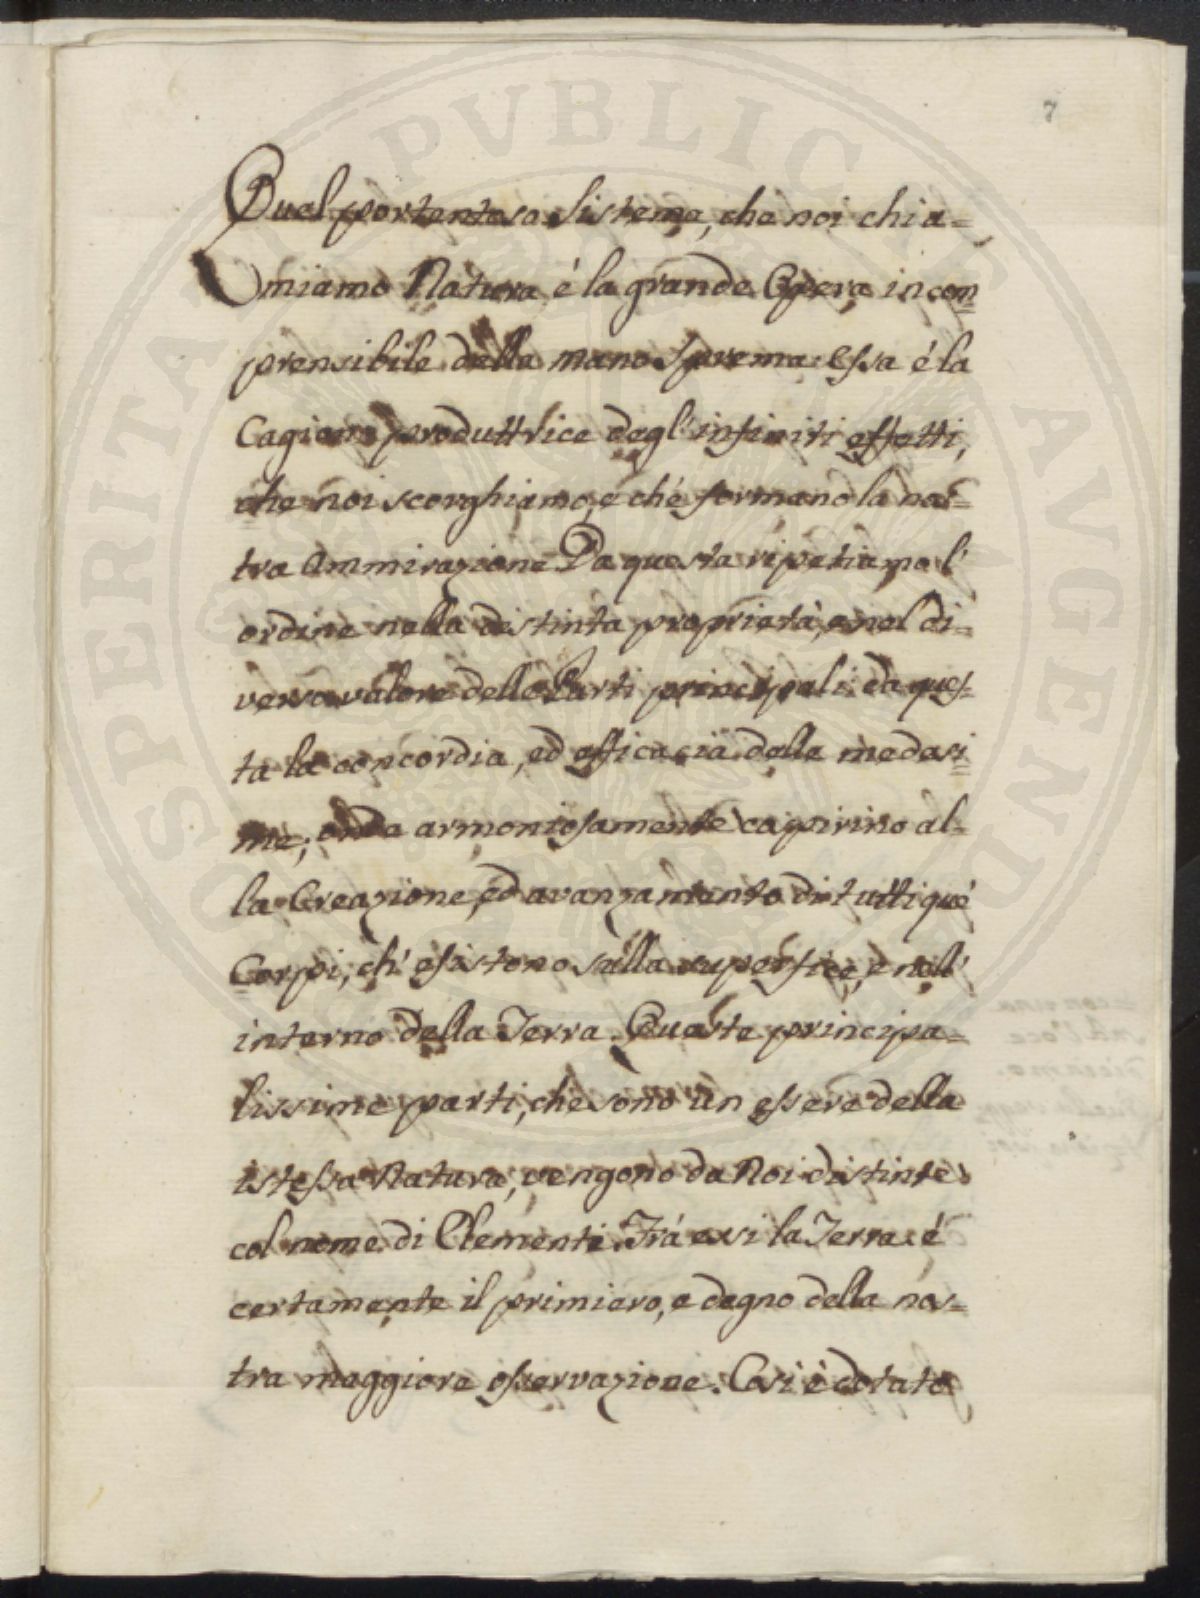 7
Quel portentoso Sistema, che noi chia=
miamo Natura, è la grande Opera incom=
prensibile della mano Sprema: Essa è la
Cagione produttrice degl'infiniti effetti,
che noi scorghiamo, e ché formano la nos=
tra Ammirazione Da questa ripetiamo l'
ordine nella distinta proprietà, e nel di=
verso valore delle Parti principali: da ques=
ta la concordia, ed efficacia delle medesi=
me; onde armoniosamente capirino al=
la Creazione, ed avanzamento di tutti qué
Corpi, ch' esistono sulla superfice, e nell'
interno della Terra. Queste principa=
lissime parti, che sono un essere della
istessa Natura, vengono da Noi distinte
col nome di Elementi. Frà essi la Terra é
certamente il primiero, e degno della nos=
tra maggiore osservazione. Così è dotato
PVBLICAE AVGENDAE
SPERITATI